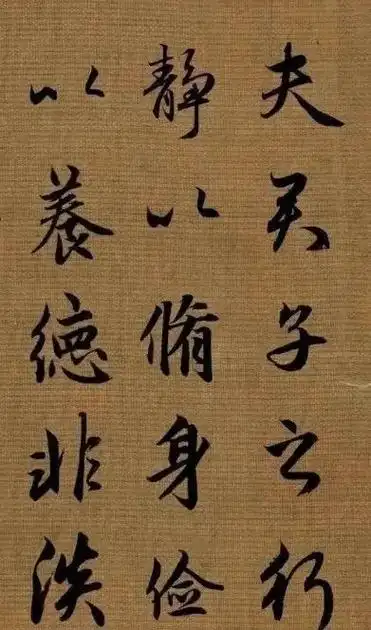 夫君子之行
静以脩身俭
以養德非淡